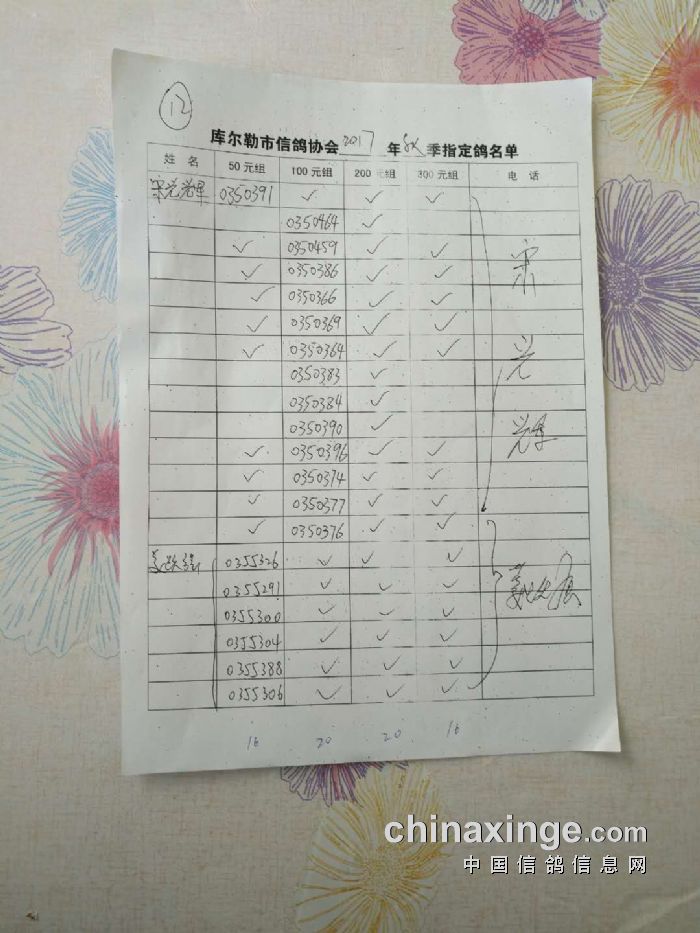 12
库尔勒市信鸽协会2017年秋季指定鸽名单
姓 名 50元组 100元组 200元组 300元组 电 话
宋光辉 0350391 ✓ ✓ ✓
0350464 ✓
✓ 0350459 ✓ ✓
✓ 0350386 ✓ ✓
✓ 0350366 ✓ ✓
✓ 0350369 ✓ ✓
✓ 0350364 ✓ ✓
0350383 ✓
0350384 ✓
0350390 ✓
✓ 0350396 ✓ ✓
✓ 0350374 ✓ ✓
✓ 0350377 ✓ ✓
✓ 0350376 ✓ ✓
宋
光
辉
0355326 ✓ ✓ ✓
0355291 ✓ ✓ ✓
0355300 ✓ ✓ ✓
0355304 ✓ ✓ ✓
0355388 ✓ ✓ ✓
0355306 ✓ ✓ ✓
16 20 20 16
chinaxinge.com
中国信鸽信息网